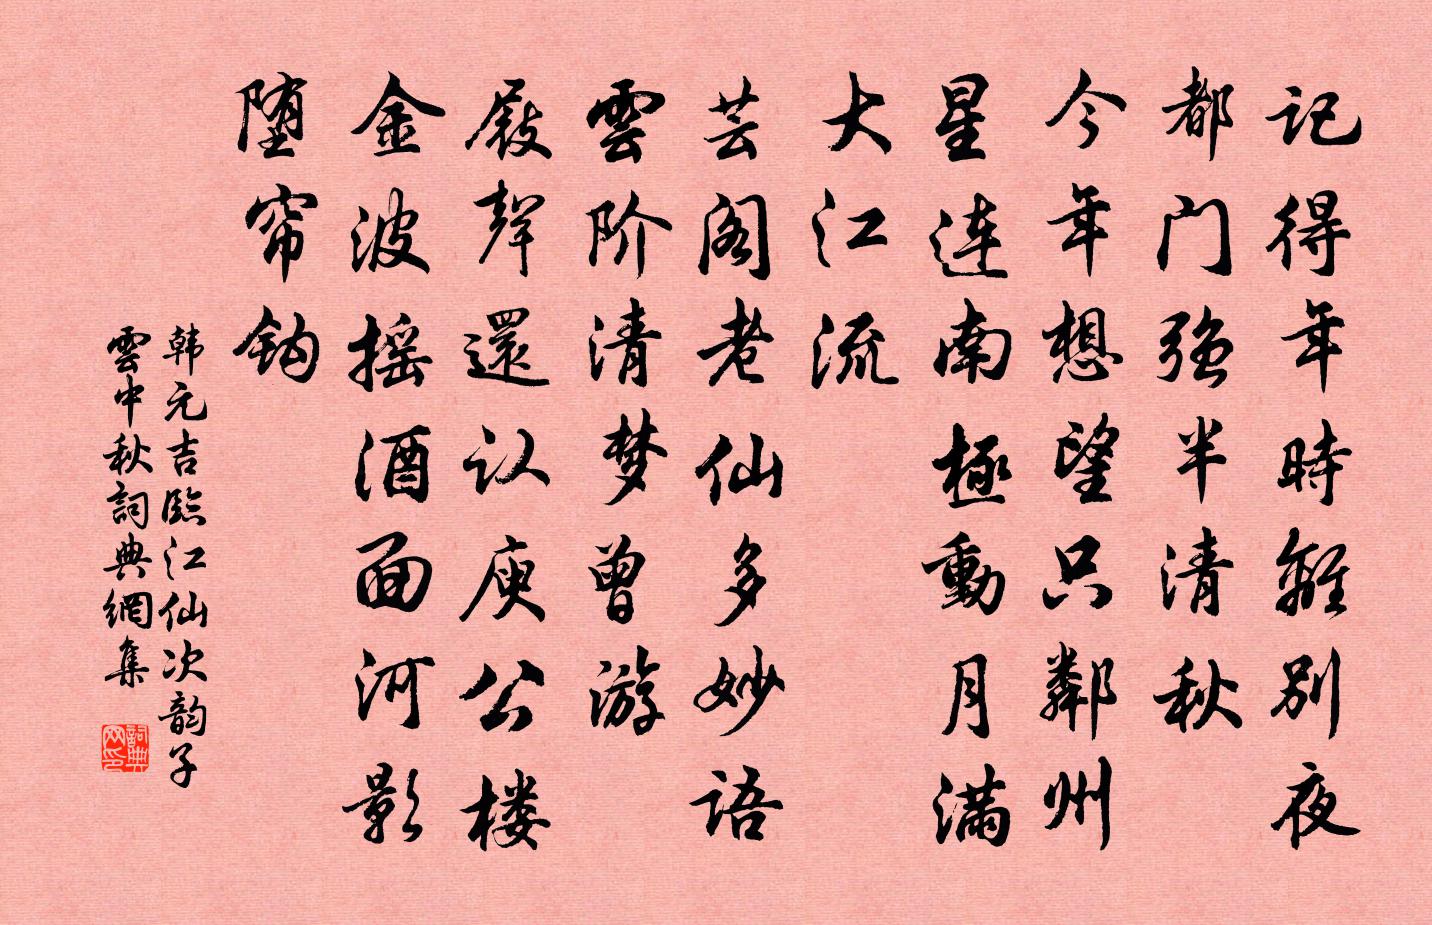 记得年時離别夜
都门强半清秋
今年想望只鄰州
星连南極動月满
大江流
芸阁老仙多妙语
雲阶清梦曾游
屐聲還认庾公楼
金波摇酒面河影
堕帘钩
韩元吉臨江仙次韵子
雲中秋詞典網集
詞典网印